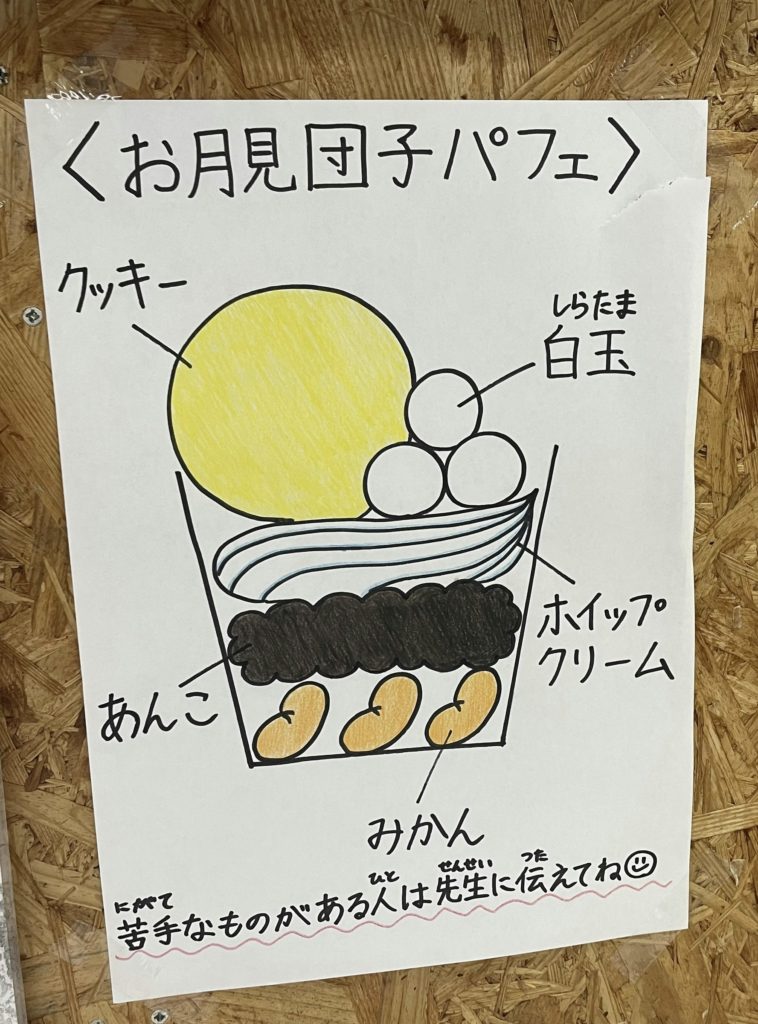 〈お月見団子パフェ〉
クッキー
しらたま
白玉
ホイップ
クリーム
あんこ
みかん
にがて ひと せんせい つた
苦手なものがある人は先生に伝えてね